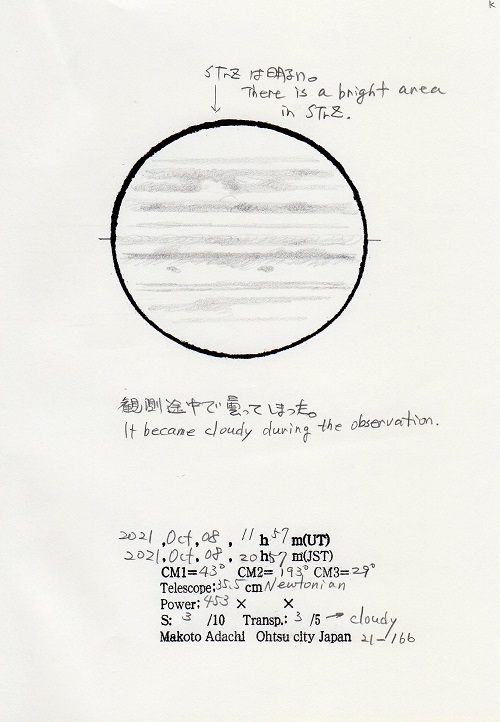 k
STrZ は明るい。
There is a bright area
in STrZ.
観測途中で曇ってしまった。
It became cloudy during the observation.
2021 , Oct , 08 , 11 h 57 m(UT)
2021 , Oct , 08 , 20 h 57 m(JST)
CM1= 43° CM2= 193° CM3= 29°
Telescope; 35.5 cm Newtonian
Power; 453 × ×
S: 3 /10 Transp.: 3 /5 → cloudy
Makoto Adachi Ohtsu city Japan 21-166